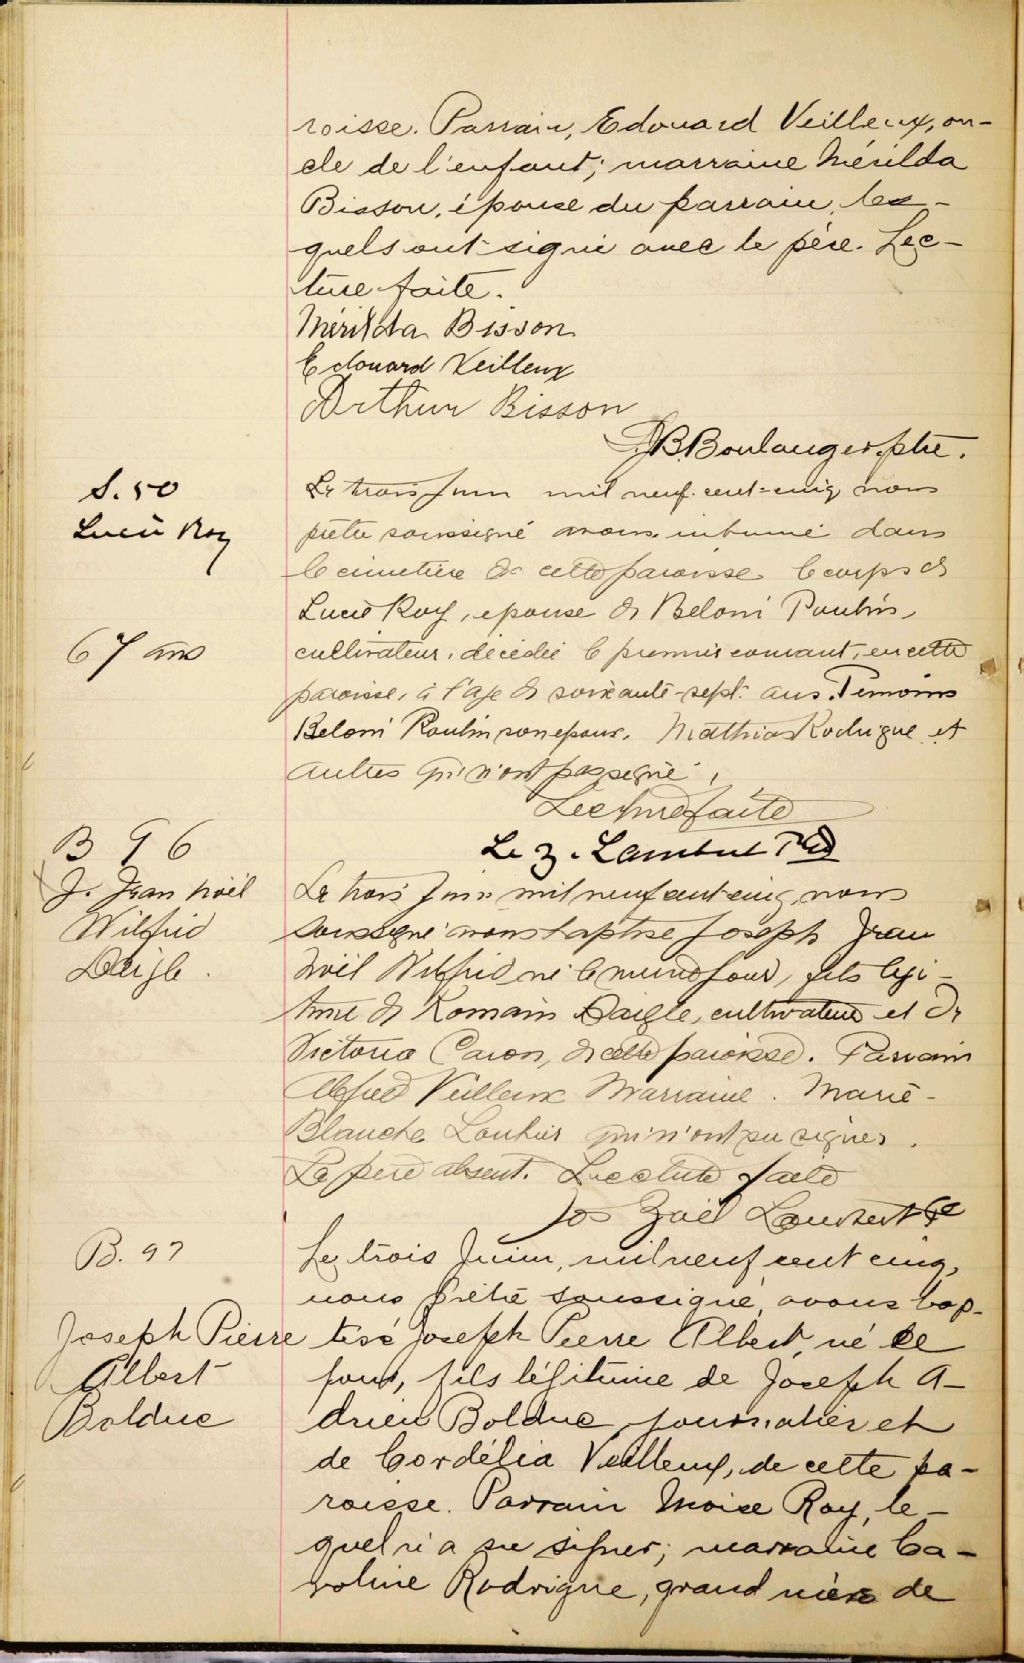 roisse. Parrain, Edouard Veilleux, on-
cle de l'enfant; marraine Mérilda
Bisson, épouse du parrain, les-
quels ont signé avec le père. Lec-
ture faite.
Mérilda Bisson
Edouard Veilleux
Arthur Bisson
J.B. Boulanger, ptre.
S. 50
Lucie Roy
67 ans
Le trois Juin mil neuf cent-cinq nous
prêtre soussigné avons inhumé dans
le cimetière de cette paroisse le corps de
Lucie Roy, épouse de Beloni Poulin,
cultivateur, décédée le premier courant, en cette
paroisse, à l'age de soixante-sept ans. Temoins
Beloni Poulin son epoux, Mathias Rodrigue et
autres qui n'ont pas signé,
Lecture faite
B 96
J. Jean Noël
Wilfrid
Daigle.
Le trois Juin mil neuf cent cinq, nous
soussigné avons baptise Joseph Jean
Noël Wilfrid né le même jour, fils legi-
time de Romain Daigle, cultivateur et de
Victoria Caron, de cette paroisse. Parrain
Alfred Veilleux Marraine. Marie-
Blanche qui n'ont su signer.
Le père absent. Lecture faite
Jos Zoël Lambert
B. 97
Joseph Pierre
Albert
Bolduc
Le trois Juin, mil neuf cent cinq,
nous prêtre soussigné, avons bap-
tisé Joseph Pierre Albert, né ce
jour, fils légitime de Joseph A-
drien Bolduc journalier et
de Cordélia Veilleux, de cette pa-
roisse. Parrain Moise Roy, le-
quel n'a su signer; marraine Ca-
roline Rodrigue, grand mère de